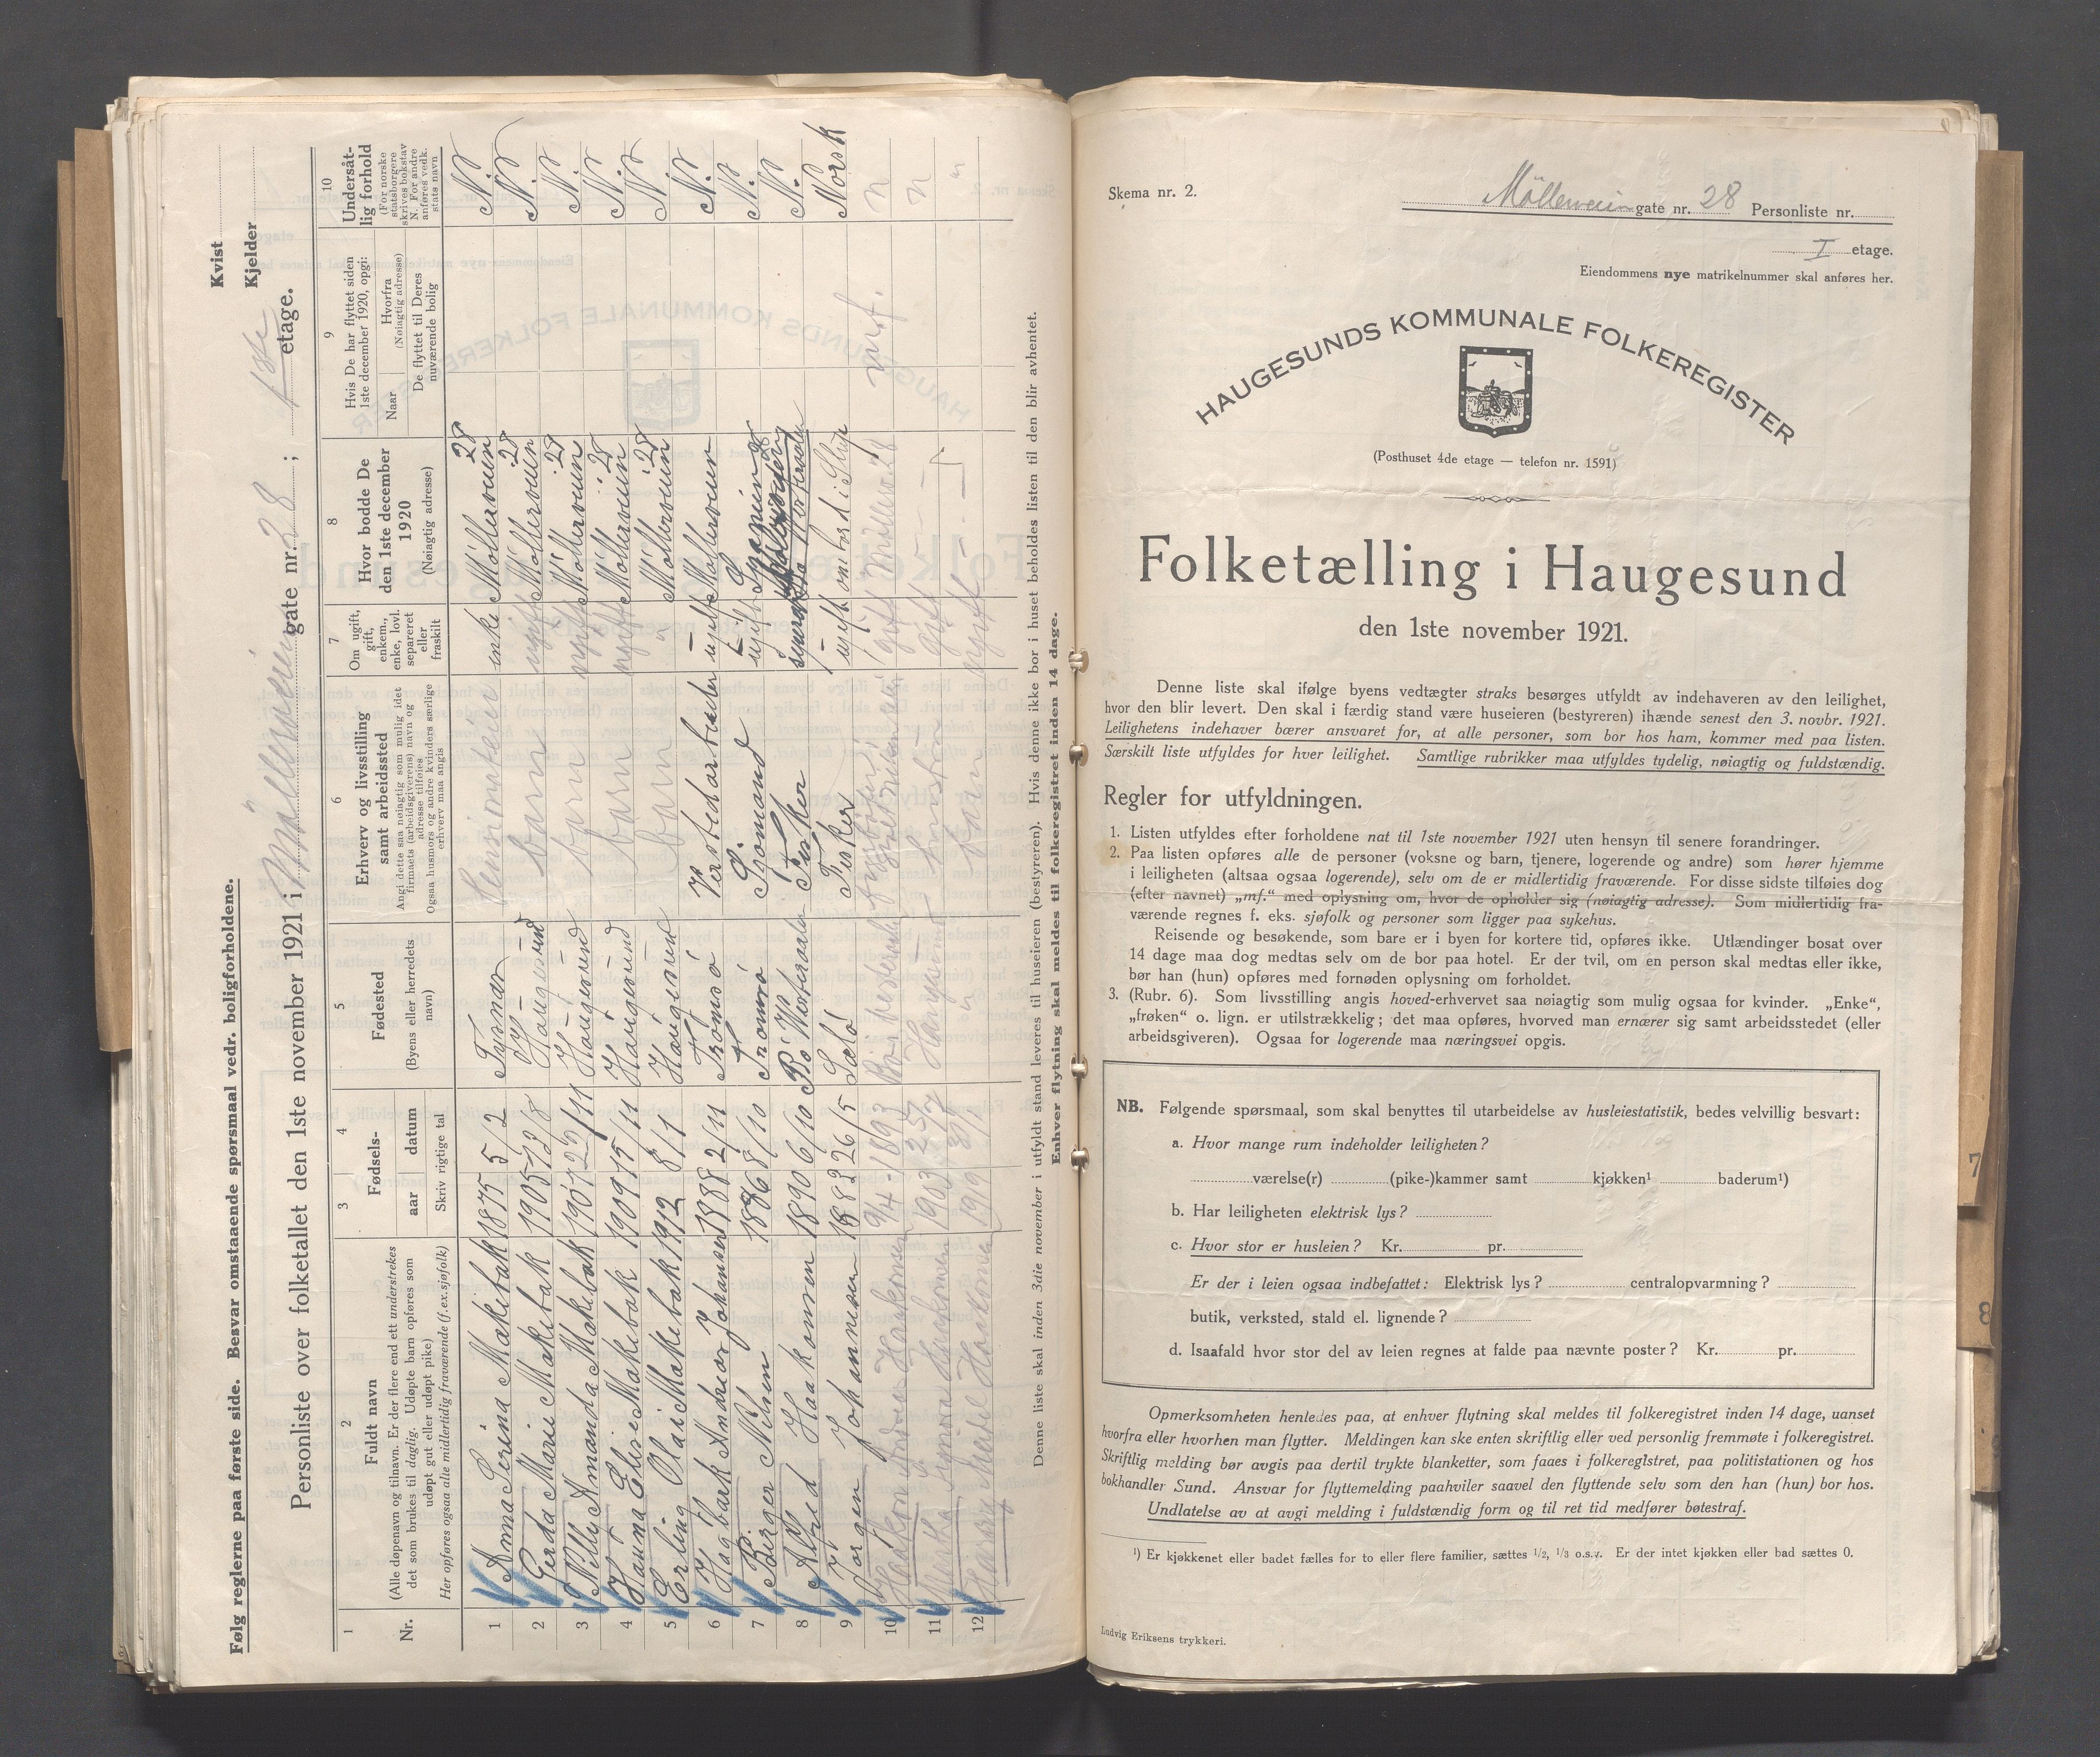 Følg reglerne paa første side. Besvar omstaaende spørsmaal vedr. boligforholdene.
Kvist
Kjelder
Personliste over folketallet den 1ste november 1921 i Möllerveien gate nr. 28 ; 1ste etage.
1
Nr.
2
Fuldt navn
(Alle døpenavn og tilnavn. Er der flere end ett understrekes
det som brukes til daglig. Udøpte barn opføres som
udøpt gut eller udøpt pike)
Her opføres ogsaa alle midlertidig fraværende (f.ex. sjøfolk)
3 4
Fødsels-
aar datum
Skriv rigtige tal
5
Fødested
(Byens eller herredets
navn)
6
Erhverv og livsstilling
samt arbeidssted
Angi dette saa nøiagtig som mulig idet
firmaets (arbeidsgiverens) navn og
adresse tilføies
Ogsaa husmors og andre kvinders særlige
erhverv maa angis
7
Om ugift,
gift,
enkem.,
enke, lovl.
separeret
eller
fraskilt
8
Hvor bodde De
den 1ste december
1920
(Nøiagtig adresse)
9
Hvis De har flyttet siden
1ste december 1920, opgi:
Naar
Hvorfra
(Nøiagtig adresse)
De flyttet til Deres
nuværende bolig
10
Undersåt-
lig forhold
(For norske
statsborgere
skrives bokstav
N. For andre
anføres vedk.
stats navn
1 Anna Serina Makebak 1875 5/2 enke Möllerveien 28 N.
2 Gerda Marie Makebak 1905 13/8 Haugesund barn ugift Möllerveien 28 N.
3 Nelly Amanda Makebak 1907 Haugesund barn ugift Möllerveien 28 N.
4 Hanna Elise Makebak 1909 15/11 Haugesund barn ugift Möllerveien 28 N.
5 Erling Olai Makebak 1912 8/1 Haugesund barn " Möllerveien 28 N.
6 Hagbart Andreas Johansen 1888 2/11 Tromsö Verstedarbeider ugift Möllerveien N.
7 Birger Nilsen 8/10 Tromsö ugift N.
8 Alfred Haakonsen 1890 6/10 Bö Vesteraalen Fisker N.
9 Jørgen Johannesen 1882 26/5 Fisker ugift ombord i Skip Norsk
10 Haakon Haakonsen 9/4 - 1893 gift Möllerv 28 m.f. n
11 Haakonsen 1903 Haugesund gift n
12 Haakonsen 1919 " barn ugift "
Denne liste skal inden 3die november i utfyldt stand leveres til huseieren (bestyreren). Hvis denne ikke bor i huset beholdes listen til den blir avhentet.
Enhver flytning skal meldes til folkeregistret inden 14 dage.
Skema nr. 2.
Möllerveien gate nr. 28 Personliste nr.
I etage.
Eiendommens nye matrikelnummer skal anføres her.
HAUGESUNDS KOMMUNALE FOLKEREGISTER
(Posthuset 4de etage — telefon nr. 1591)
Folketælling i Haugesund
den 1ste november 1921.
Denne liste skal ifølge byens vedtægter straks besørges utfyldt av indehaveren av den leilighet,
hvor den blir levert. Den skal i færdig stand være huseieren (bestyreren) ihænde senest den 3. novbr. 1921.
Leilighetens indehaver bærer ansvaret for, at alle personer, som bor hos ham, kommer med paa listen.
Særskilt liste utfyldes for hver leilighet. Samtlige rubrikker maa utfyldes tydelig, nøiagtig og fuldstændig.
Regler for utfyldningen.
1. Listen utfyldes efter forholdene nat til 1ste november 1921 uten hensyn til senere forandringer.
2. Paa listen opføres alle de personer (voksne og barn, tjenere, logerende og andre) som hører hjemme
i leiligheten (altsaa ogsaa logerende), selv om de er midlertidig fraværende. For disse sidste tilføies dog
(efter navnet) „mf.“ med oplysning om, hvor de opholder sig (nøiagtig adresse). Som midlertidig fra-
værende regnes f. eks. sjøfolk og personer som ligger paa sykehus.
Reisende og besøkende, som bare er i byen for kortere tid, opføres ikke. Utlændinger bosat over
14 dage maa dog medtas selv om de bor paa hotel. Er der tvil, om en person skal medtas eller ikke,
bør han (hun) opføres med fornøden oplysning om forholdet.
3. (Rubr. 6). Som livsstilling angis hoved-erhvervet saa nøiagtig som mulig ogsaa for kvinder. „Enke“,
„frøken“ o. lign. er utilstrækkelig; det maa opføres, hvorved man ernærer sig samt arbeidsstedet (eller
arbeidsgiveren). Ogsaa for logerende maa næringsvei opgis.
NB. Følgende spørsmaal, som skal benyttes til utarbeidelse av husleiestatistik, bedes velvillig besvart:
a. Hvor mange rum indeholder leiligheten?
værelse(r) (pike-)kammer samt kjøkken¹ baderum¹)
b. Har leiligheten elektrisk lys?
c. Hvor stor er husleien? Kr. pr.
Er der i leien ogsaa indbefattet: Elektrisk lys? centralopvarmning?
butik, verksted, stald el. lignende?
d. Isaafald hvor stor del av leien regnes at falde paa nævnte poster? Kr. pr.
Opmerksomheten henledes paa, at enhver flytning skal meldes til folkeregistret inden 14 dage, uanset
hvorfra eller hvorhen man flytter. Meldingen kan ske enten skriftlig eller ved personlig fremmøte i folkeregistret.
Skriftlig melding bør avgis paa dertil trykte blanketter, som faaes i folkeregistret, paa politistationen og hos
bokhandler Sund. Ansvar for flyttemelding paahviler saavel den flyttende selv som den han (hun) bor hos.
Undlatelse av at avgi melding i fuldstændig form og til ret tid medfører bøtestraf.
¹) Er kjøkkenet eller badet fælles for to eller flere familier, sættes 1/2, 1/3 o.s.v. Er der intet kjøkken eller bad sættes 0.
Ludvig Eriksens trykkeri.
7
8